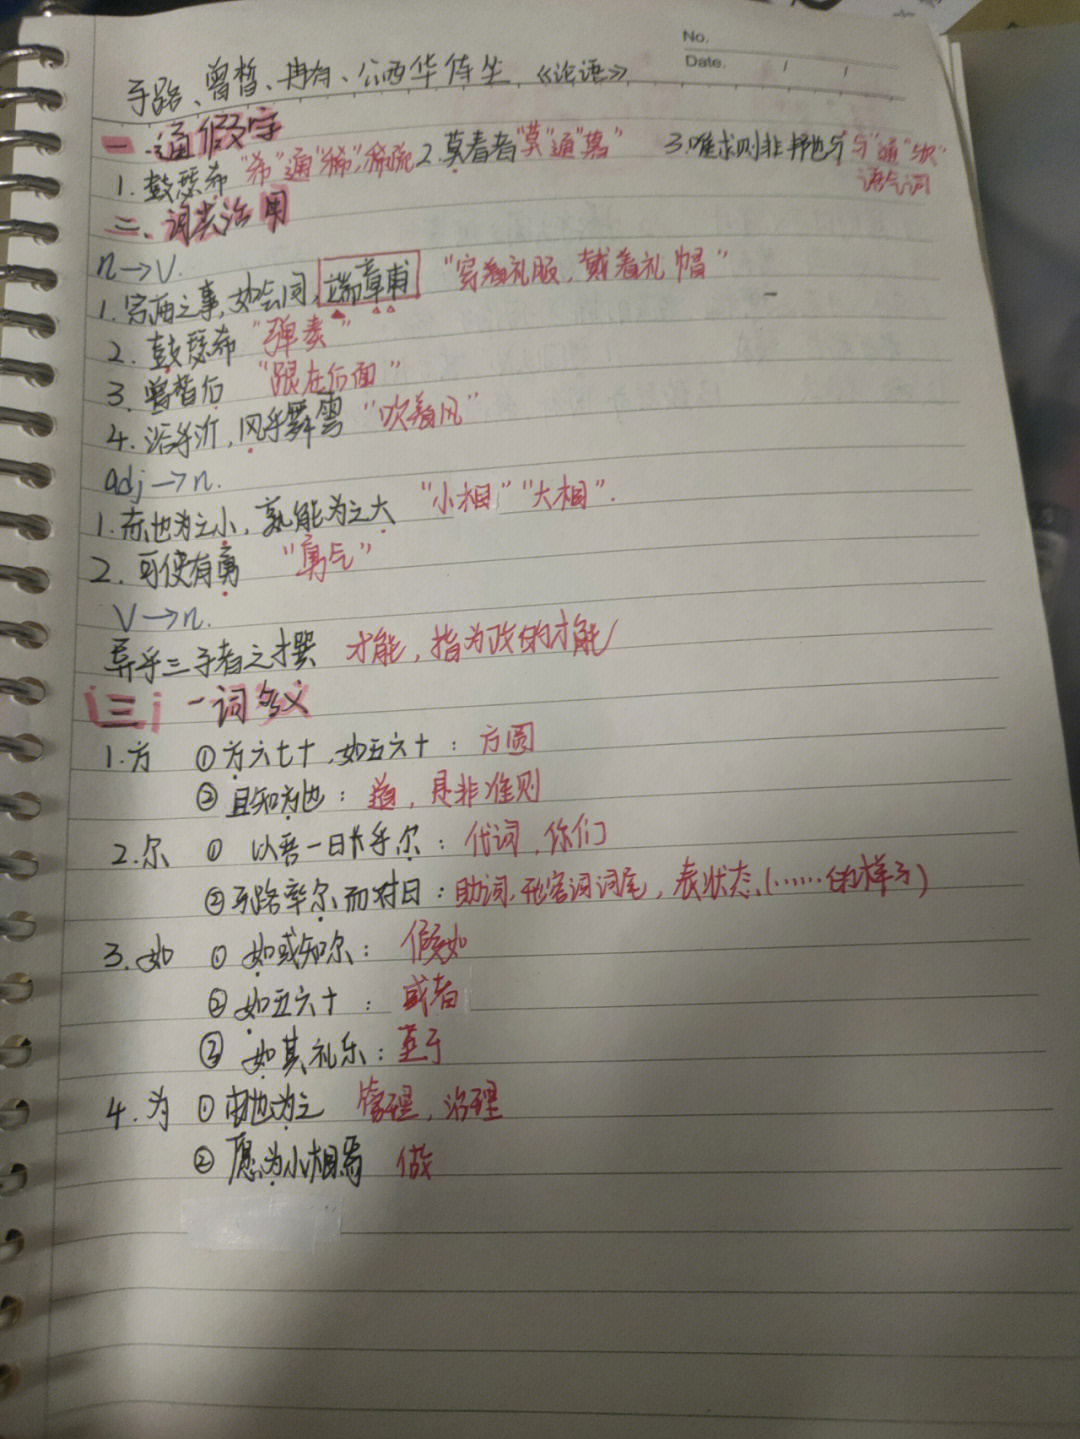 No.
Date. / /
子路、曾皙、冉有、公西华侍坐 《论语》
一.通假字
1.鼓瑟希 "希"通"稀",稀疏 2.莫春者"莫"通"暮" 3.唯求则非邦也与"与"通"欤"
语气词
二、词类活用
n→V.
1.宗庙之事,如会同,端章甫 "穿着礼服,戴着礼帽"
2.鼓瑟希 "弹奏"
3.曾皙后 "跟在后面"
4.浴乎沂,风乎舞雩 "吹着风"
adj→n.
1.赤也为之小,孰能为之大 "小相""大相".
2.可使有勇 "勇气"
V→n.
异乎三子者之撰 才能,指为政的才能
三 一词多义
1.方 ①方六七十,如五六十:方圆
②且知方也:道,是非准则
2.尔 ① 以吾一日长乎尔:代词,你们
②子路率尔而对曰:助词,形容词词尾,表状态,(……的样子)
3.如 ① 如或知尔:假如
②如五六十:或者
③ 如其礼乐:至于
4.为 ①由也为之 管理,治理
② 愿为小相焉 做